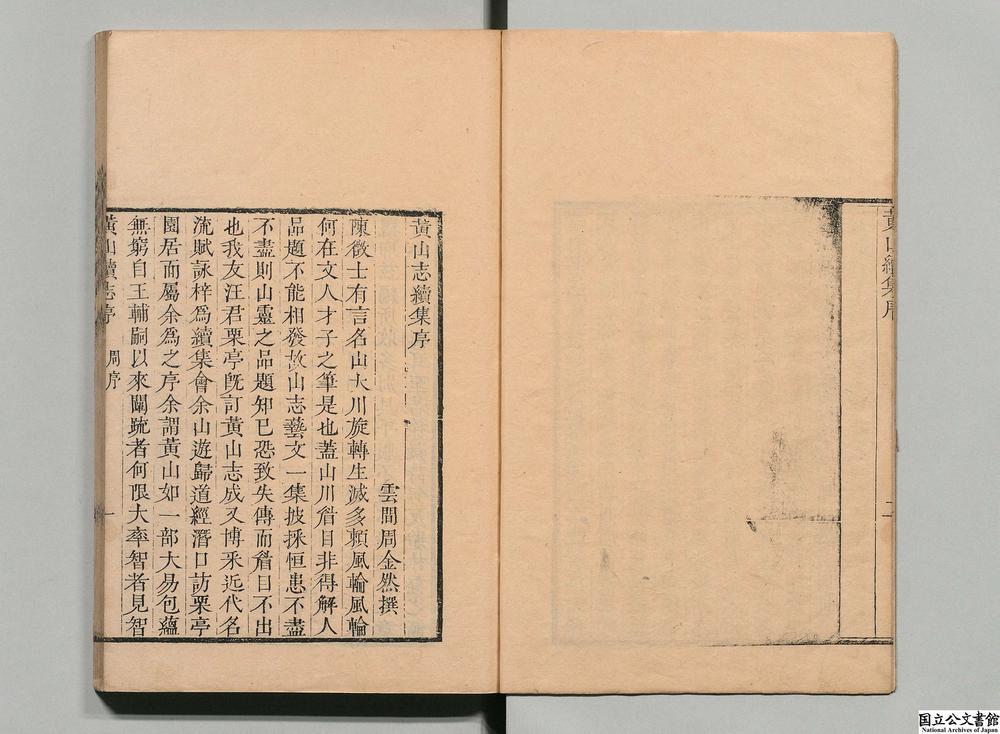 黃山續集序
二
黃山志續集序
雲間周金然撰
陳徵士有言名山大川旋轉生滅多頼風輪風輪
何在文人才子之筆是也葢山川眉目非得解人
品題不能相發故山志藝文一集披採恒患不盡
不盡則山靈之品題知已恐致失傳而眉目不出
也我友汪君栗亭旣訂黃山志成又博采近代名
流賦詠梓爲續集會余山遊歸道經潛口訪栗亭
園居而屬余爲之序余謂黃山如一部大易包蘊
無窮自王輔嗣以來闡䟽者何限大率智者見智
黃山續志序
周序
一
国立公文書館
National Archives of Japan